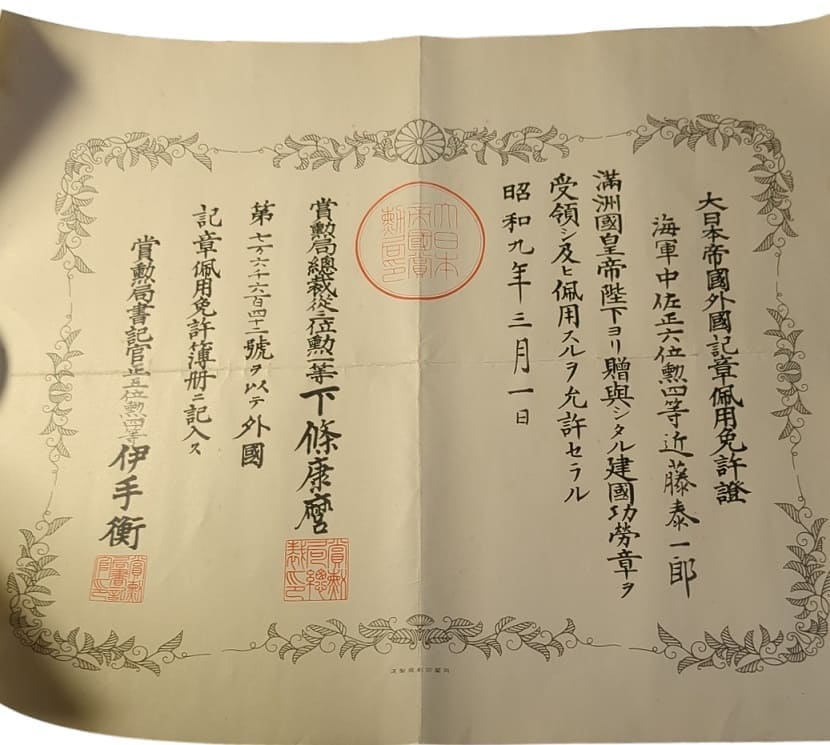 大日本帝國外國記章佩用免許證
海軍中佐正六位勲四等近藤泰一郎
滿洲國皇帝陛下ヨリ贈與シタル建國功勞章ヲ
受領シ及ヒ佩用スルヲ允許セラル
昭和九年三月一日
大日本
帝國賞
勲局印
賞勲局總裁從三位勲一等下條康麿
賞勲
局總
裁印
第七万六千六百四十二號ヲ以テ外國
記章佩用免許簿册ニ記入ス
賞勲局書記官正五位勲四等伊手衡
賞勲
局書記
官印